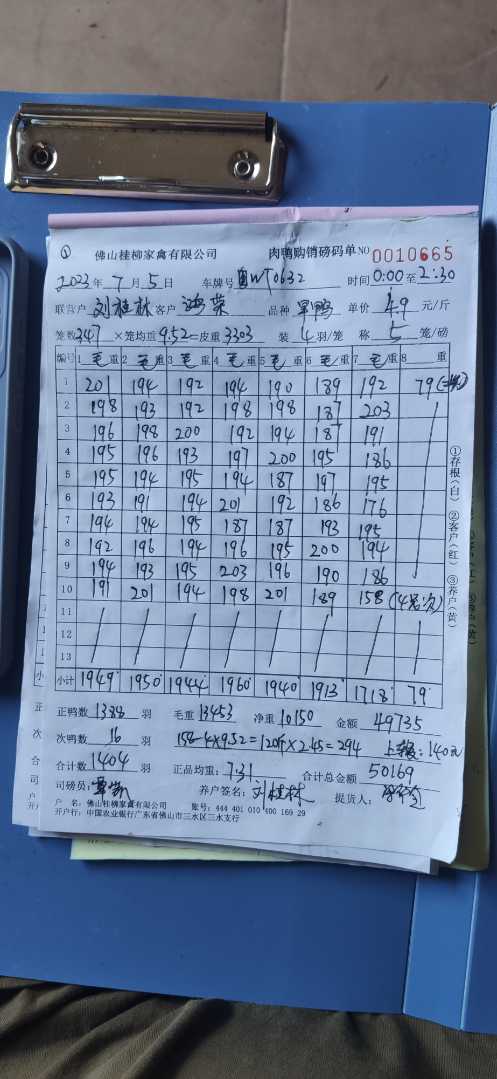 ① 佛山桂柳家禽有限公司 肉鸭购销磅码单 NO 0010665
2023 年 7 月 5 日 车牌号 WT0632 时间 0:00 至 2:30
联营户 刘桂林 客户 鸿荣 品种 旱鸭 单价 4.9 元/斤
笼数 347 ×笼均重 9.52 =皮重 3303 装 4 羽/笼 称 5 笼/磅
编号 1 毛重 2 毛重 3 毛重 4 毛重 5 毛重 6 毛重 7 毛重 8 重
1 201 194 192 194 190 189 192 79
2 198 193 192 198 198 187 203
3 196 198 200 192 194 187 191
4 195 196 193 197 200 195 186
5 195 194 195 194 187 197 195
6 193 191 194 201 192 186 176
7 194 194 195 187 187 193 195
8 192 196 194 196 195 200 194
9 194 193 195 203 196 190 186
10 191 201 194 198 201 189 158 (4笼次)
11
12
13
小计 1949 1950 1944 1960 1940 1913 1718 79
①存根(白) ②客户(红) ③养户(黄)
正鸭数 1388 羽 毛重 13453 净重 10150 金额 49735
次鸭数 16 羽 158-4×9.52=120斤×2.45=294 上车: 140元
合计数 1404 羽 正品均重: 7.31 合计总金额 50169
司磅员: 养户签名: 刘桂林 提货人:
户 名: 佛山桂柳家禽有限公司 账号: 444 401 010 400 169 29
开户行: 中国农业银行广东省佛山市三水区三水支行